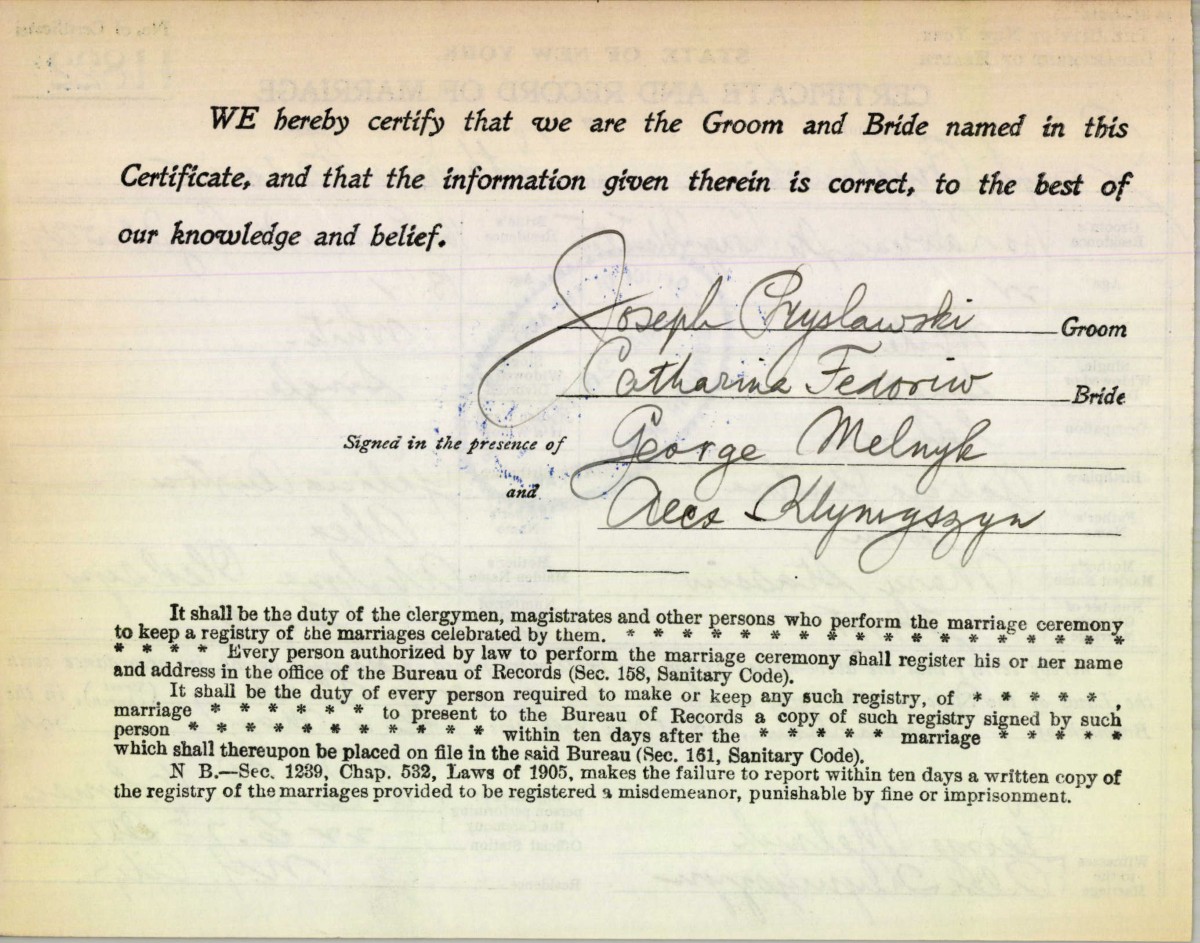 WE hereby certify that we are the Groom and Bride named in this
Certificate, and that the information given therein is correct, to the best of
our knowledge and belief.
Joseph Pryslawski Groom
Catharina Fedoriw Bride
Signed in the presence of George Melnyk
and Alex Klymyszyn
It shall be the duty of the clergymen, magistrates and other persons who perform the marriage ceremony
to keep a registry of the marriages celebrated by them. * * * * * * * * * * * * * * * * * *
* * * * Every person authorized by law to perform the marriage ceremony shall register his or her name
and address in the office of the Bureau of Records (Sec. 158, Sanitary Code).
It shall be the duty of every person required to make or keep any such registry, of * * * * * ,
marriage * * * * * * to present to the Bureau of Records a copy of such registry signed by such
person * * * * * * * * * * * within ten days after the * * * * * marriage * * * * *
which shall thereupon be placed on file in the said Bureau (Sec. 161, Sanitary Code).
N B.—Sec. 1239, Chap. 532, Laws of 1905, makes the failure to report within ten days a written copy of
the registry of the marriages provided to be registered a misdemeanor, punishable by fine or imprisonment.